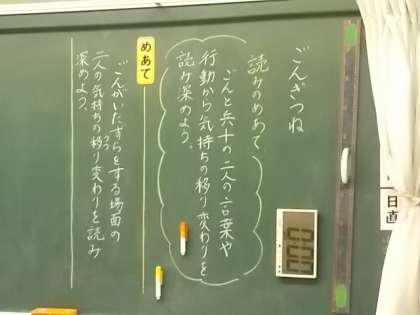 ごんぎつね
読みのめあて
ごんと兵十の二人の言葉や
行動から気持ちの移り変わりを
読み深めよう。
めあて
ごんがいたずらをする場面の
二人の気持ちの移り変わりを読み
深めよう。
日直